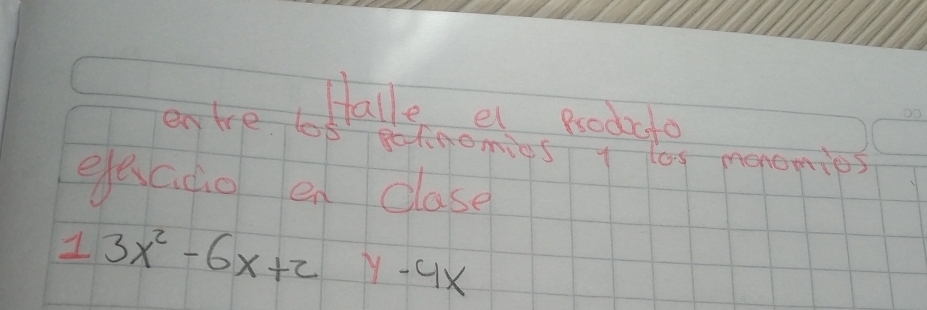 Halle el Producto
entre los polinomios y los monomios
ejercicio en clase
1 3x² - 6x + 2 y - 4x